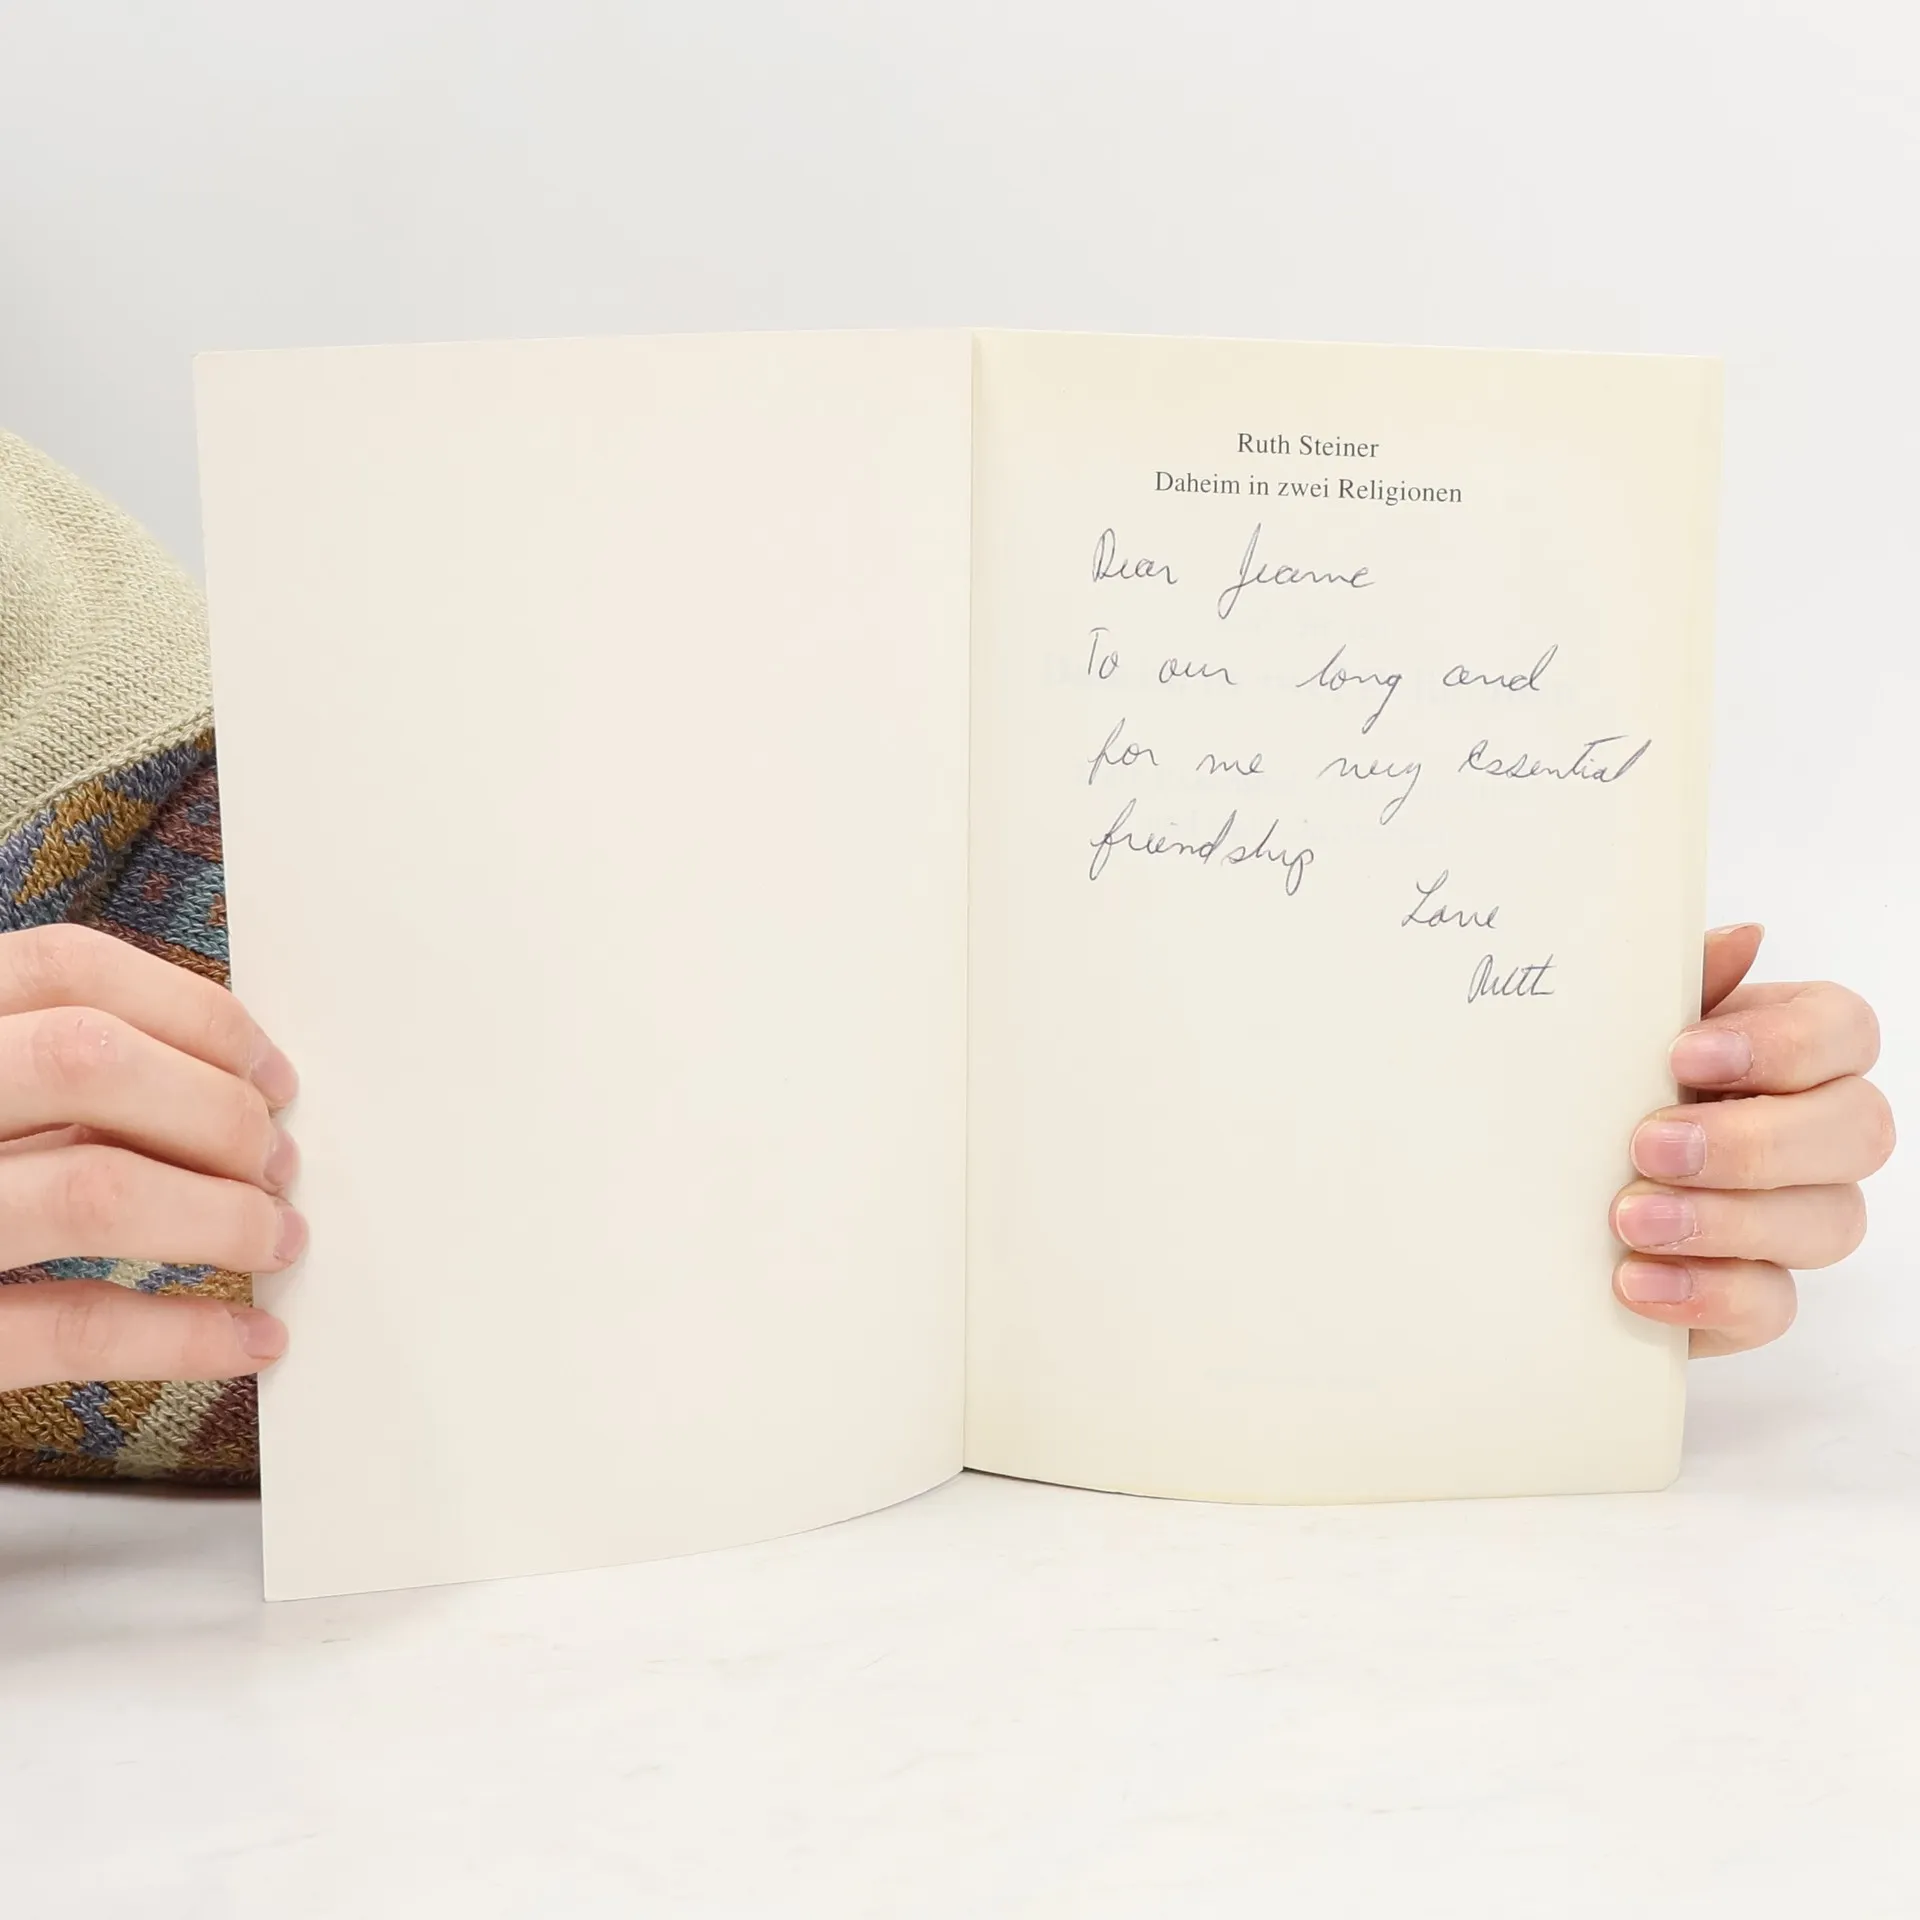 Ruth Steiner
Daheim in zwei Religionen
Dear Jeanne
To our long and
for me very essential
friendship
Love
Ruth